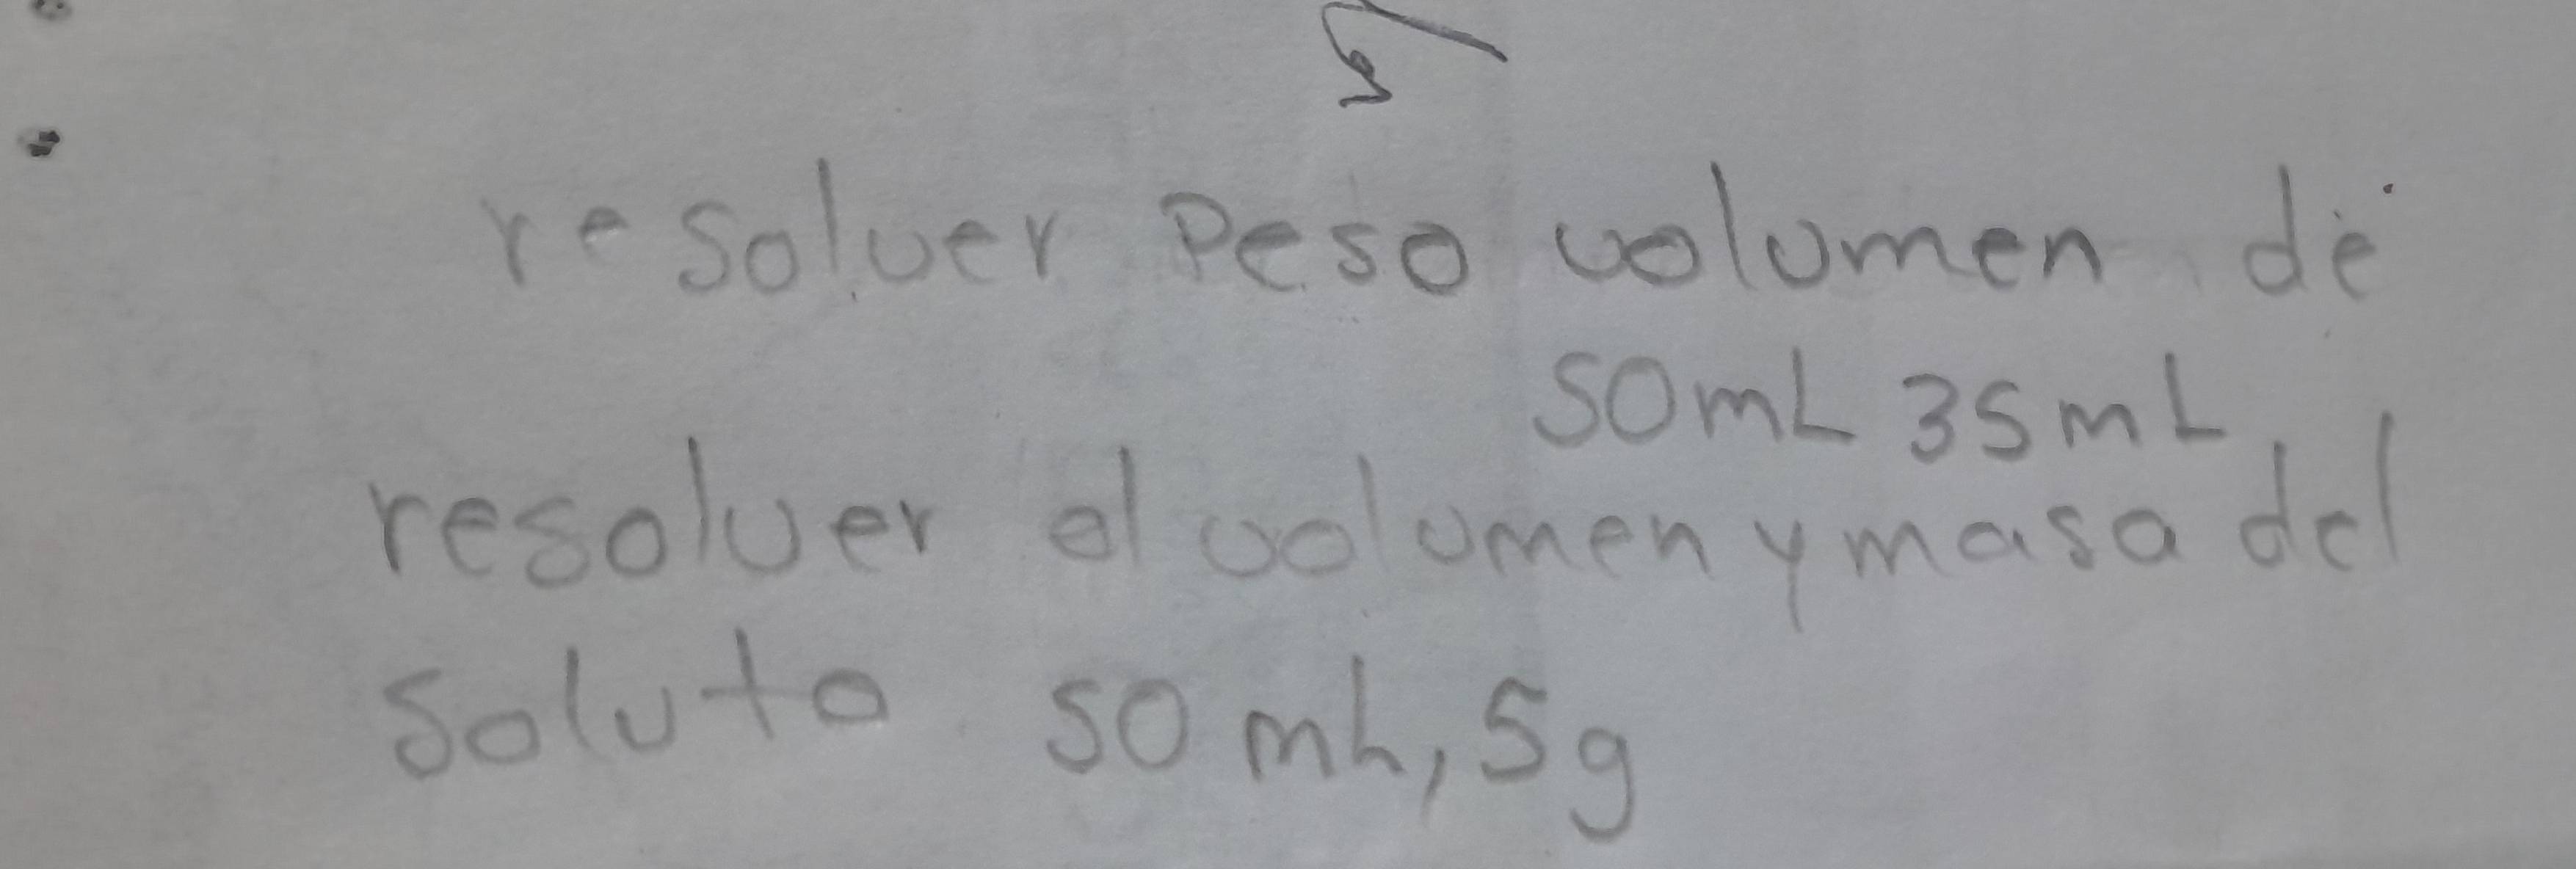 resolver Peso volumen de
50mL 35mL
resolver el volumen y masa del
soluto 50 mL, 5g